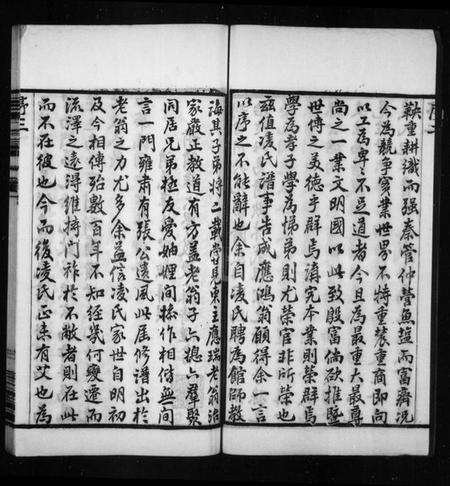 鞅重耕織而强秦管仲營魚鹽而富齊況
今為競爭實業世界不特重農重商即向
以工為卑卑不足道者今且為最重大最尊
尚之一業文明國以此致殷富倘欲推暨
世傳之美德乎群焉講究本業則榮群焉
學為孝子學為悌弟則尤榮官非所榮也
茲值凌氏譜事告成應鴻翁顧得余一言
以序之不能辭也余自凌氏聘為館師教
誨其子弟將二載常見東主應瑞老翁治
家嚴正教道有方蓋老翁子六孫六群聚
同居兄弟極友愛妯娌間操作相偕無間
言一門雍肅有張公遺風此届修譜出於
老翁之力尤多余益信凌氏家世自明初
及今相傳殆數百年不知經幾何變遷而
流澤之遠得維持門祚於不敝者則在此
而不在彼也今而後凌氏正未有艾也為
序三